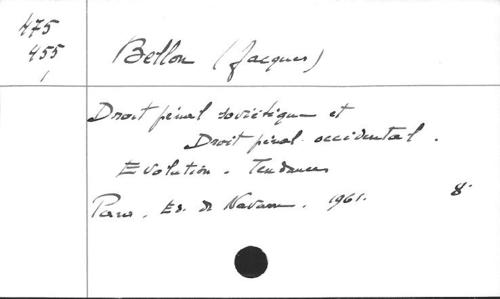 475
455
1
Bellon (Jacques)
Droit pénal soviétique et
Droit pénal occidental.
Evolution. Tendances
Paris. Ed. de Navarre. 1961. 8°